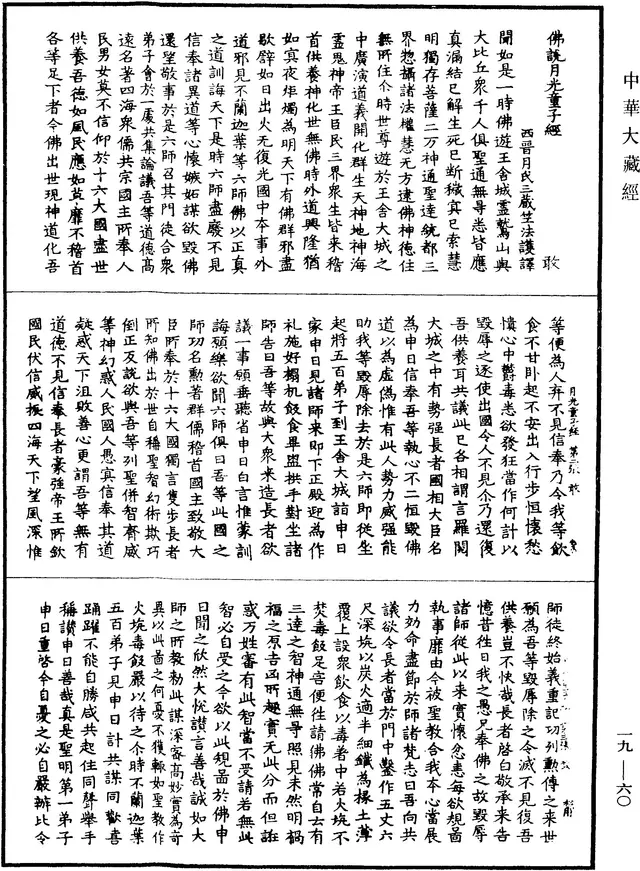 中華大藏經
佛說月光童子經 敢
西晉月氏三藏竺法護譯
聞如是一時佛遊王舍城靈鷲山與
大比丘眾千人俱聖通無㝵悉皆應
真漏結已解生死已斷穢冥已索慧
明獨存菩薩二万神通聖達統都三
界惣攝諸法權慧无方逮佛神德住
無所住尒時世尊遊於王舍大城之
中廣演道義開化群生天神地神海
靈鬼神帝王臣民三界眾生皆來稽
首供養神化世無佛時外道興隆猶
如冥夜炬燭為明天下有佛群邪盡
歇辟如日出火无復光國中本事外
道邪見不蘭迦葉等六師佛以正真
之道訓誨天下是時六師盡廢不見
信奉諸異道等心懷嫉妬謀欲毀佛
還望敬事於是六師召其門徒合眾
弟子會於一處共集論議吾等道德高
遠名著四海眾儒共宗國主所奉人
民男女莫不信仰於十六大國盡世
供養吾德如風民應如草靡不稽首
各等足下者今佛出世現神道化吾
等便為人弃不見信奉乃令我等飲
食不甘卧起不安出入行步恒懷愁
憒心中欝毒悉欲發狂當作何計以
毀辱之逐使出國令人不見尒乃還復
吾供養耳共議此已各相謂言羅閱
大城之中有勢強長者國相大臣名
為申日信奉吾等執心不二恒毀佛
道以為虛偽惟有此人勢力威強能
助我等毀辱除去於是六師即從坐
起將五百弟子到王舍大城詣申日
家申日見諸師來即下正殿迎為作
礼施好榻机飯食畢盥拱手對坐諸
師告曰吾等故與大眾來造長者欲
議一事願垂聽省申日白言惟蒙訓
誨預樂欲聞六師俱曰吾等此國之
師功名勳著群儒稽首國主致敬大
臣所奉於十六大國獨言隻步長者
所知佛出於世自稱聖智幻術欺巧
倒正反說欲與吾等列聖併智齊威
等神幻惑人民國人愚真信奉其道
疑惑天下沮敗善心更謂吾等無有
道德不見信奉長者豪強帝王所欽
國民伏信威振四海天下望風深惟
月光童子經 第二張 敢
師徒終始義重記功列勳傳之來世
願為吾等毀辱除之令滅不見復吾
供養豈不快哉長者啓白敬承來告
憶昔徃日我之愚兄奉佛之故毀辱
諸師從此以來實懷忿恚每欲規啚
執事靡由今被聖教合我本心當展
力効命盡節於師諸梵志曰吾向共
議欲令長者當於門中鑿作五丈六
尺深坑以炭火過半細鐵為椽土薄
覆上設眾飲食以毒著中若火坑不
焚毒飯足害便徃請佛佛常自云有
三達之智神通無㝵照見未然明禍
福之原吉凶所趣實无此分而但誑
惑万姓審有此智當不受請若無此
智必自受之今欲以此規啚於佛申
日聞之欣然大悅讃言善哉誠如大
師之所教勑此謀深審高妙實為奇
異以此啚之何憂不獲輒如聖教作
火坑毒飯嚴以待之尒時不蘭迦葉
五百弟子見申日計共謀同歡喜
踊躍不能自勝咸共起住同聲舉手
稱讃申日善哉真是聖明第一弟子
申日重啓今自憂之必自嚴辦比令
一九—六〇